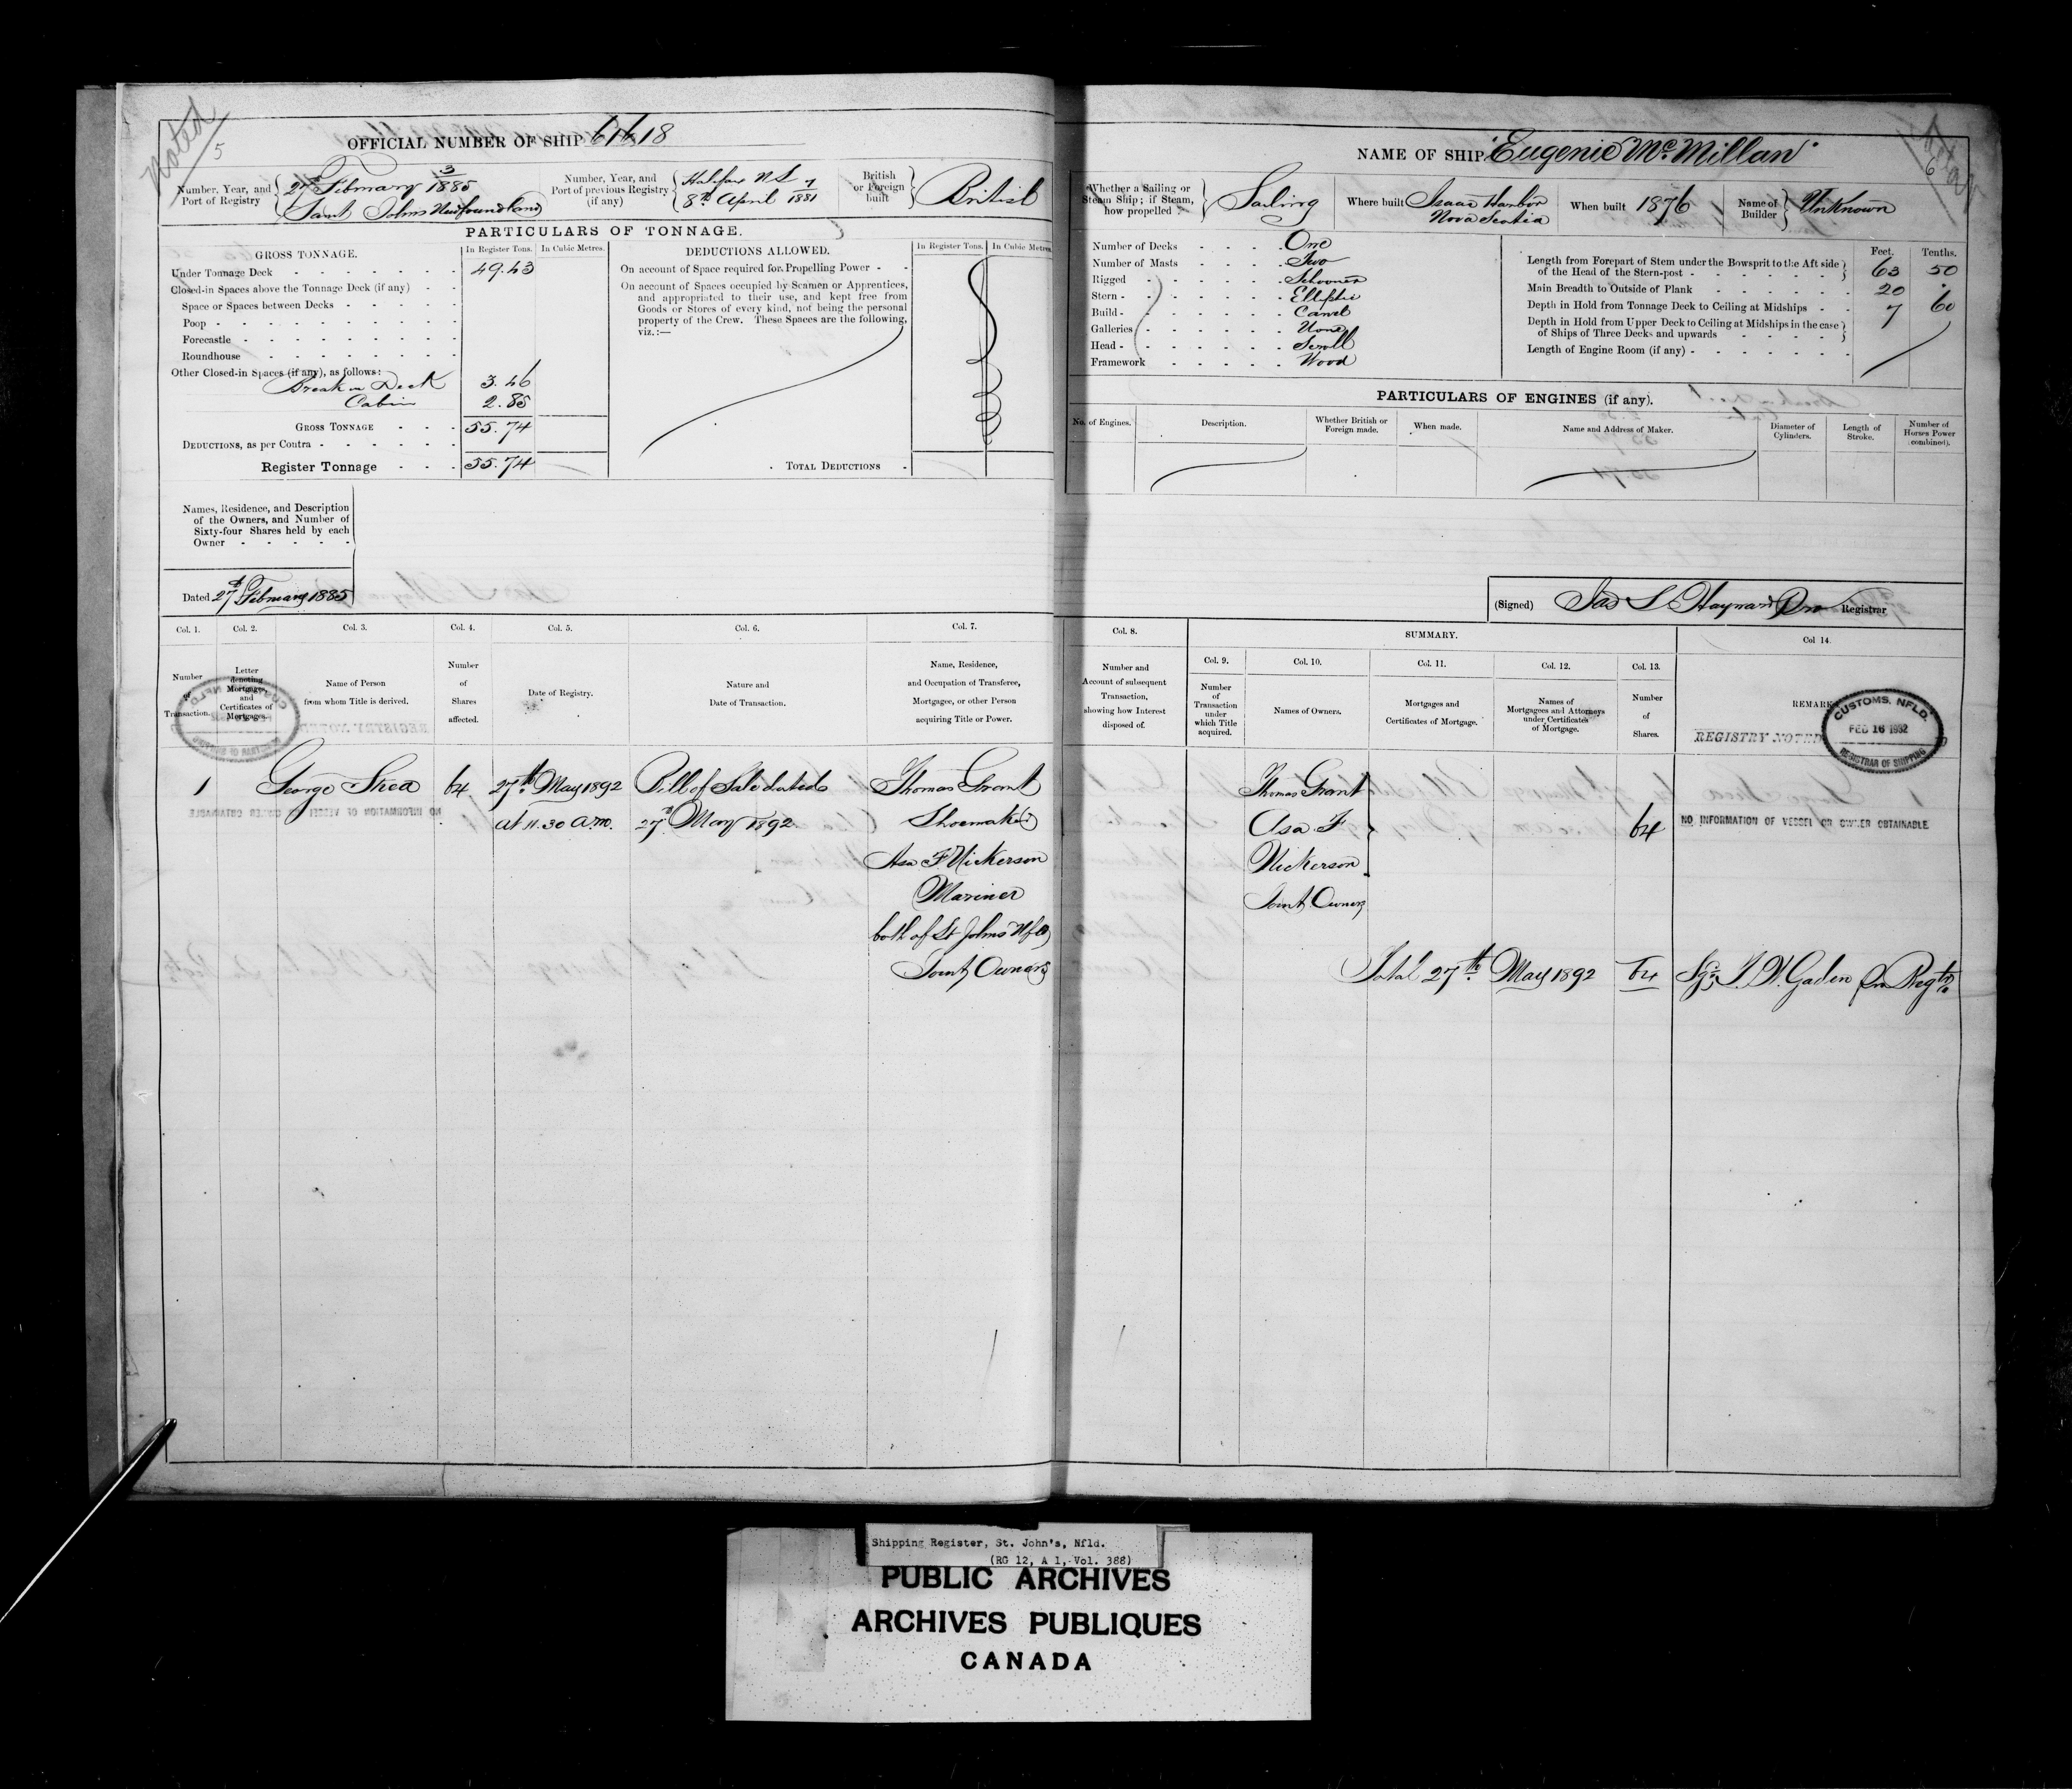 Noted
5
OFFICIAL NUMBER OF SHIP 61618
Number, Year, and Port of Registry
3
27th February 1885
Saint Johns Newfoundland
Number, Year, and Port of previous Registry (if any)
Halifax N.S. 7
8th April 1881
British or Foreign built
British
PARTICULARS OF TONNAGE.
GROSS TONNAGE.
In Register Tons. In Cubic Metres.
Under Tonnage Deck 49.43
Closed-in Spaces above the Tonnage Deck (if any)
Space or Spaces between Decks
Poop
Forecastle
Roundhouse
Other Closed-in Spaces (if any), as follows:
Break in Deck 3.46
Cabin 2.85
GROSS TONNAGE 55.74
DEDUCTIONS, as per Contra
Register Tonnage 55.74
DEDUCTIONS ALLOWED.
In Register Tons. In Cubic Metres.
On account of Space required for Propelling Power
On account of Spaces occupied by Seamen or Apprentices,
and appropriated to their use, and kept free from
Goods or Stores of every kind, not being the personal
property of the Crew. These Spaces are the following,
viz.:—
TOTAL DEDUCTIONS
Names, Residence, and Description
of the Owners, and Number of
Sixty-four Shares held by each
Owner
Dated 27th February 1885
NAME OF SHIP "Eugenie McMillan"
6
Whether a Sailing or
Steam Ship; if Steam,
how propelled
Sailing
Where built Isaac Harbor
Nova Scotia
When built 1876
Name of Builder
Unknown
Number of Decks One
Number of Masts Two
Rigged Schooner
Stern Elliptic
Build Carvel
Galleries None
Head Scroll
Framework Wood
Feet. Tenths.
Length from Forepart of Stem under the Bowsprit to the Aft side
of the Head of the Stern-post 63 50
Main Breadth to Outside of Plank 20 .
Depth in Hold from Tonnage Deck to Ceiling at Midships 7 60
Depth in Hold from Upper Deck to Ceiling at Midships in the case
of Ships of Three Decks and upwards
Length of Engine Room (if any)
PARTICULARS OF ENGINES (if any).
No. of Engines.
Description.
Whether British or Foreign made.
When made.
Name and Address of Maker.
Diameter of Cylinders.
Length of Stroke.
Number of Horses Power combined).
(Signed) Jas S. Hayward Registrar
Col. 1.
Col. 2.
Col. 3.
Col. 4.
Col. 5.
Col. 6.
Col. 7.
Col. 8.
SUMMARY.
Col. 9.
Col. 10.
Col. 11.
Col. 12.
Col. 13.
Col 14.
Number of Transaction.
Letter denoting Mortgages, and Certificates of Mortgages.
Name of Person from whom Title is derived.
Number of Shares affected.
Date of Registry.
Nature and Date of Transaction.
Name, Residence, and Occupation of Transferee, Mortgagee, or other Person acquiring Title or Power.
Number and Account of subsequent Transaction, showing how Interest disposed of.
Number of Transaction under which Title acquired.
Names of Owners.
Mortgages and Certificates of Mortgage.
Names of Mortgagees and Attorneys under Certificates of Mortgage.
Number of Shares.
REMARKS
REGISTRY NOTED
CUSTOMS, NFLD.
FEB 16 1932
REGISTRAR OF SHIPPING
1 George Shea 64 27th May 1892 Bill of Sale dated Thomas Grant
at 11.30 a.m. 27th May 1892. Shoemaker
Asa F Nickerson
Mariner
both of St Johns Nfld
Joint Owners
Thomas Grant
Asa F
Nickerson
Joint Owners
64
NO INFORMATION OF VESSEL OR OWNER OBTAINABLE
Total 27th May 1892 64 Sgn J. W. Gaden Regtr
Shipping Register, St. John's, Nfld.
(RG 12, A 1, Vol. 388)
PUBLIC ARCHIVES
ARCHIVES PUBLIQUES
CANADA